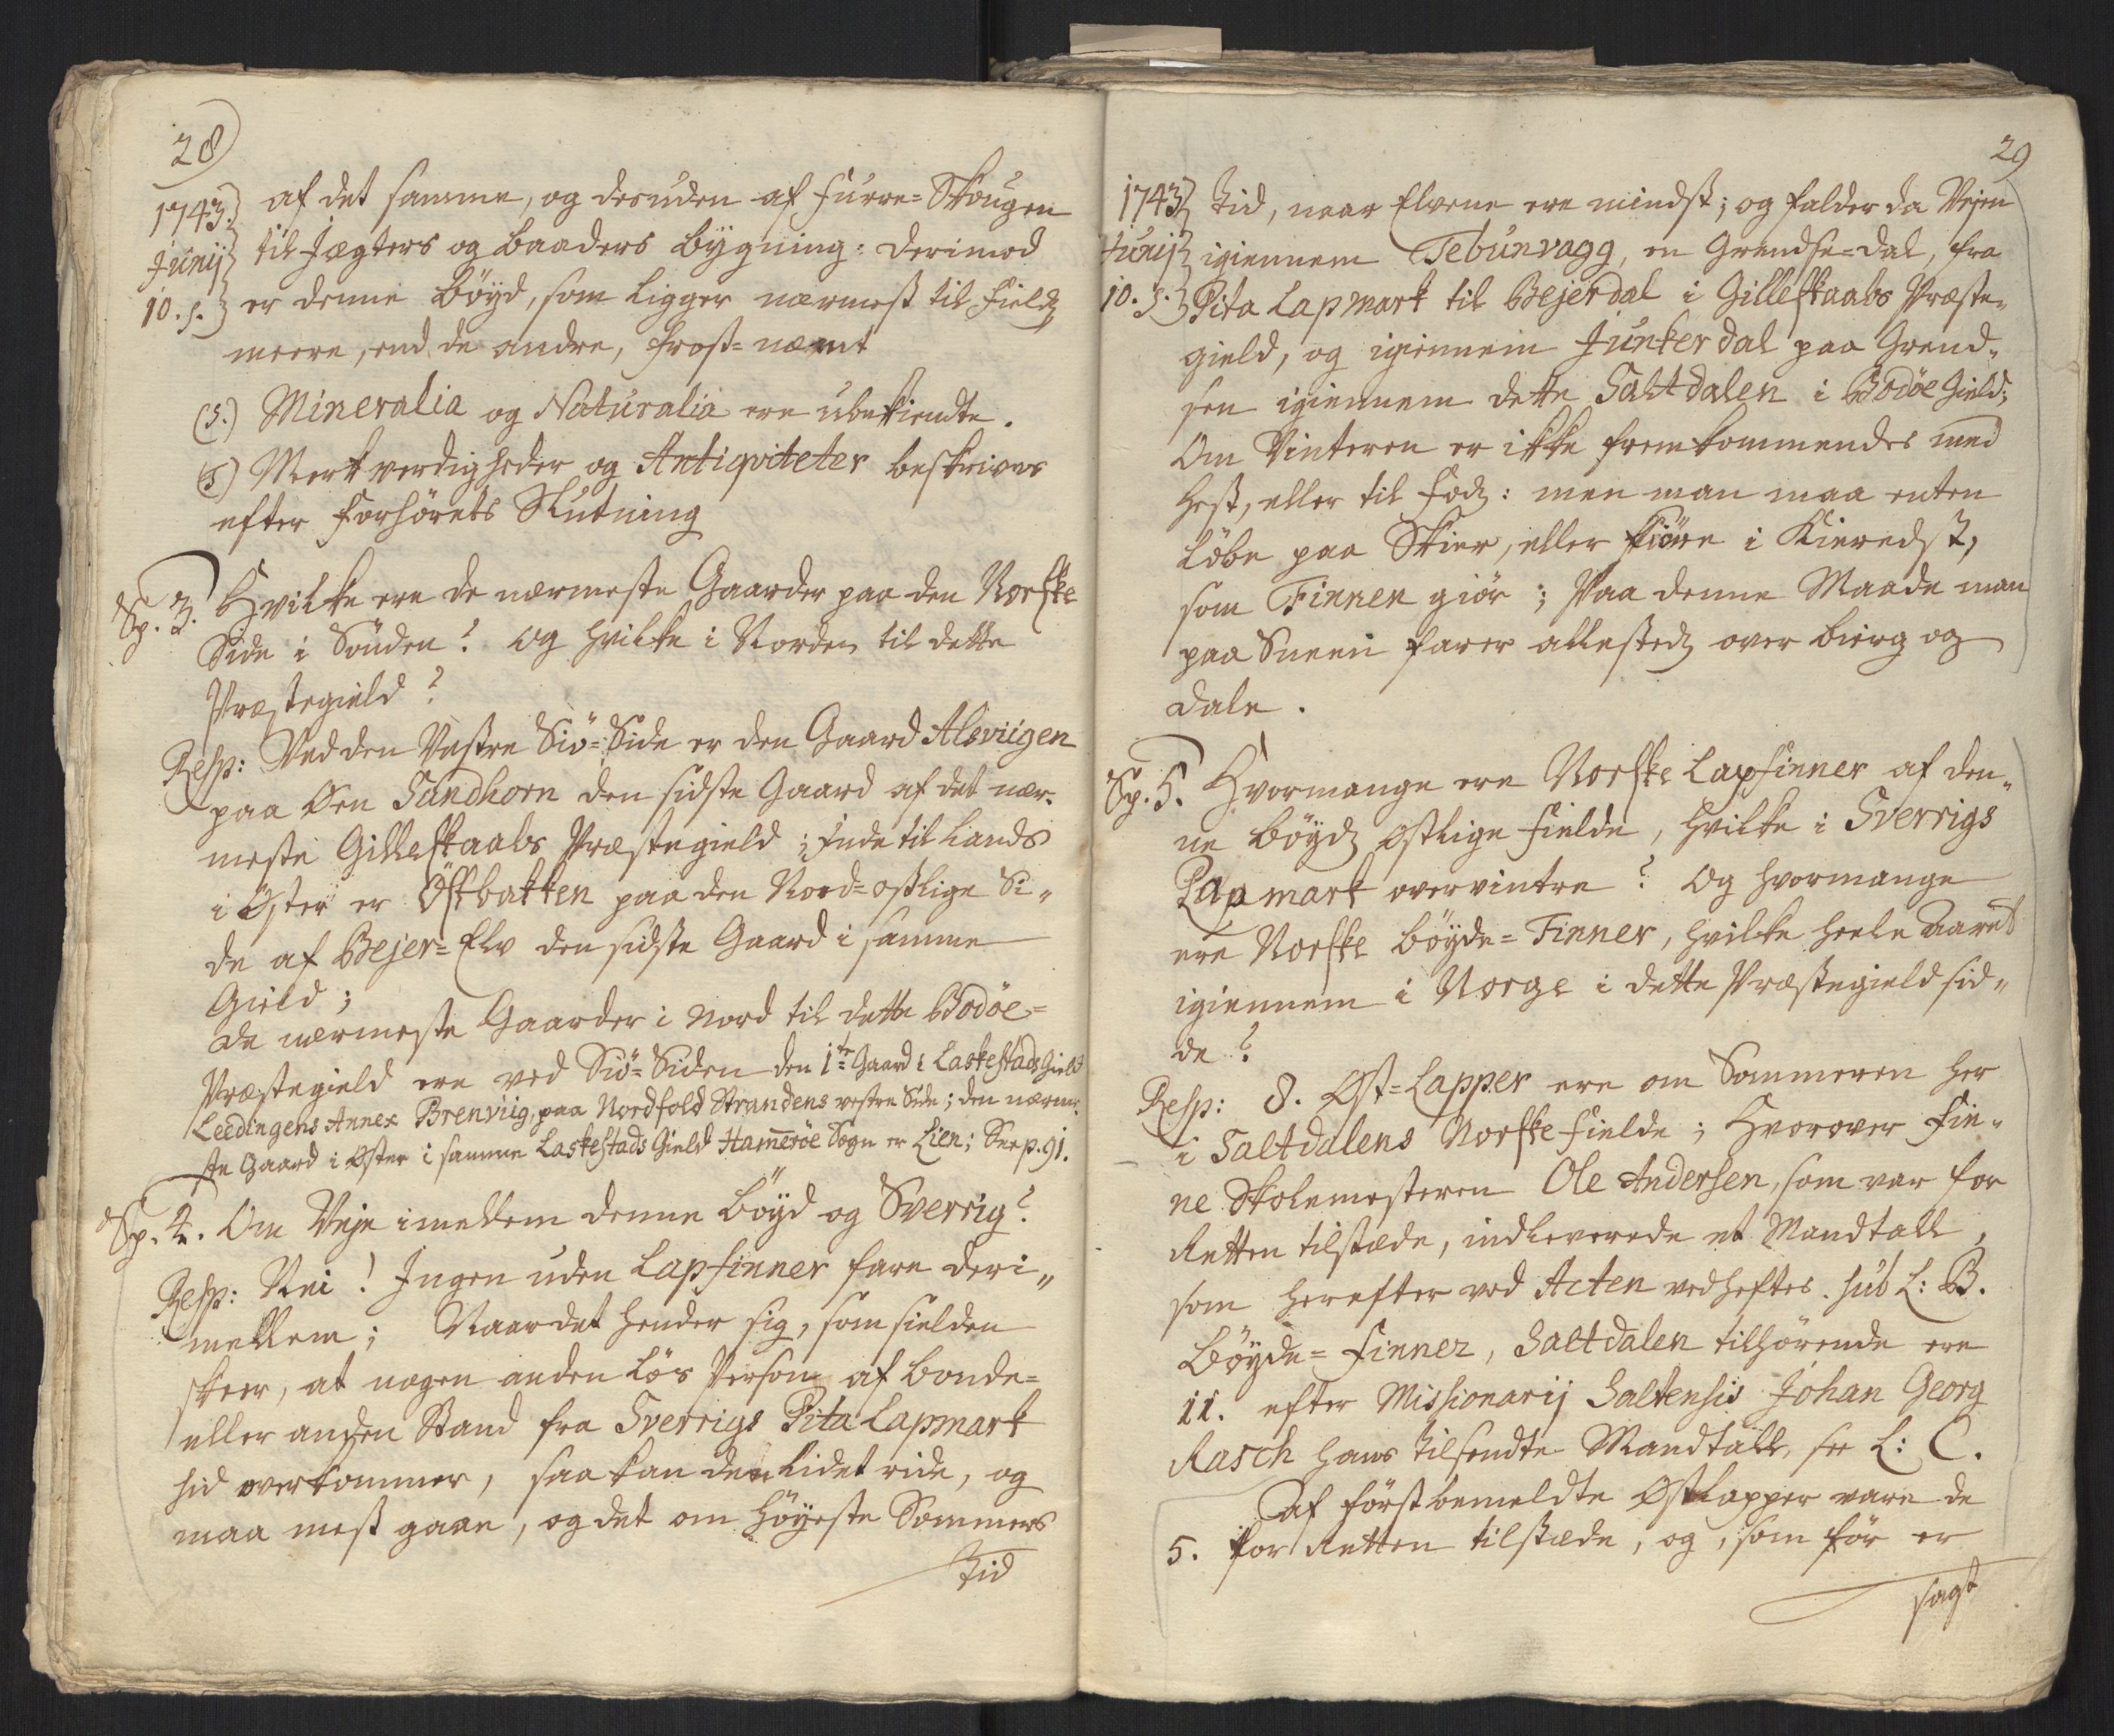 28
1743. af det samme, og desuden af Furre=Skougen
Junij til Jægters og Baaders Bygning: Derimod
10. s. er denne Böyd, som ligger nærmest til Fieldz
meere, end de andre, Frost=næmt
(s.) Mineralia og Naturalia ere ubekiendte.
(t) Merkverdigheder og Antiqviteter beskrives
efter Forhörets Slutning
Sp. 3. Hvilke ere de nærmeste Gaarder paa den Norske
Side i Sönden? og hvilke i Norden til dette
Præstegield?
Resp: Ved den Vestre Siö=Side er den Gaard Alsviigen
paa Øen Sandhorn den sidste Gaard af det nær-
meste Gilleskaals Præstegield; Inde til Lands
i Øster er Östbakken paa den Nord=ostlige Si„
de af Bejer=Elv den sidste Gaard i samme
Gield;
De nærmeste Gaarder i Nord til dette Bodöe=
Præstegield ere ved Siö=Siden den 1te Gaard i Laskestads Gield
Leedingens Annex Brenviig, paa Nordfold Strandens vestre Side; den nærme-
ste Gaard i Øster i samme Laskestads Gield Hameröe Sogn er Lien; See p. 91.
Sp. 4. Om Veje imellem denne Böyd og Sverrig?
Resp: Nei! Ingen uden Lapfinner fare deri„
mellem; Naar det hender sig, som sielden
skeer, at nogen anden Lös Person af Bonde=
eller anden Stand fra Sverrigs Pita Lapmark
hid overkommer, saa kan den lidet ride, og
maa mest gaae, og det om Höyeste Sommers
Tid
29
1743 Tid, naar Elvene ere mindst; og falder da Vejen
Junij igiennem Tebunvagg, en Grendse=Dal, fra
10. s. Pita Lapmark til Bejerdal i Gilleskaals Præste-
gield, og igiennem Junkerdal paa Grend„
sen igiennem dette Saltdalen i Bodöe Gield;
Om Vinteren er ikke fremkommendes med
Hest, eller til Fodz: men man maa enten
Löbe paa Skier, eller kiöre i Kieredst,
som Finnen giör; Paa denne Maade man
paa Sneen farer allestedz over Bierg og
Dale.
Sp. 5. Hvormange ere Norske Lapfinner af den„
ne Böydz Ostlige Fielde, hvilke i Sverrigs
Lapmark overvintre? Og hvormange
ere Norske Böyde=Finner, hvilke heele Aaret
igiennem i Norge i dette Præstegield sid„
de?
Resp: 8. Øst=Lapper ere om Sommeren her
i Saltdalens Norske Fielde; Hvorover Fin„
ne Skolemesteren Ole Andersen, som var for
Retten tilstæde, indleverede et Mandtall,
som herefter ved Acten vedheftes. sub L: B.
Böyde=Finner, Saltdalen tilhörende ere
11. efter Missionarij Saltensis Johan Georg
Rasch hans tilsendte Mandtall, see L: C.
Af först bemeldte Ostlapper vare de
5. for Retten tilstæde, og, som för er
sagt